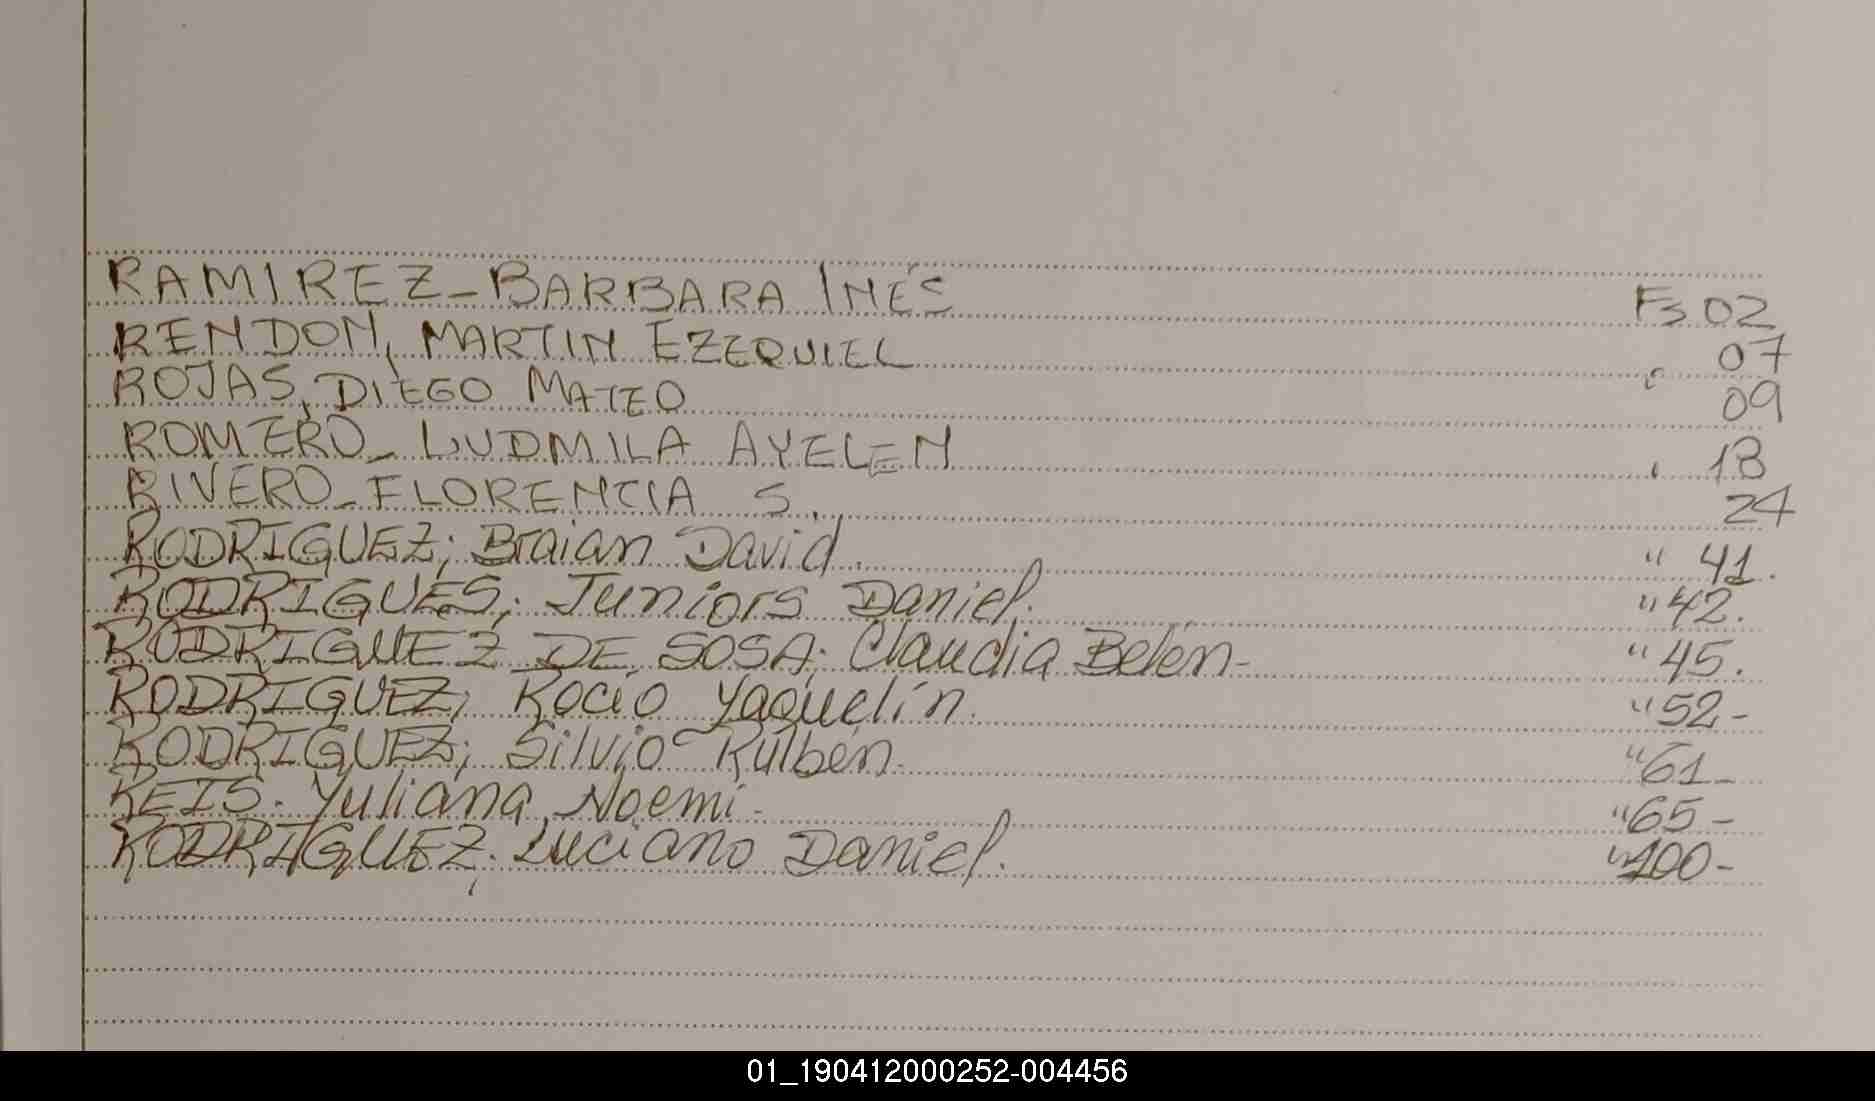 RAMIREZ - BARBARA INÉS Fs 02
RENDON, MARTIN EZEQUIEL 07
ROJAS, DIEGO MATEO " 09
ROMERO - LUDMILA AYELEN " 13
RIVERO - FLORENCIA S. 24
RODRIGUEZ; Braian David. " 41.
RODRIGUES; Juniors Daniel. " 42.
RODRIGUEZ DE SOSA; Claudia Belén - " 45.
RODRIGUEZ; Rocio Yaquelín. " 52-
RODRIGUEZ; Silvio Rulbén. " 61-
REIS. Yuliana Noemi - " 65-
RODRIGUEZ; Luciano Daniel. " 100-
01_190412000252-004456